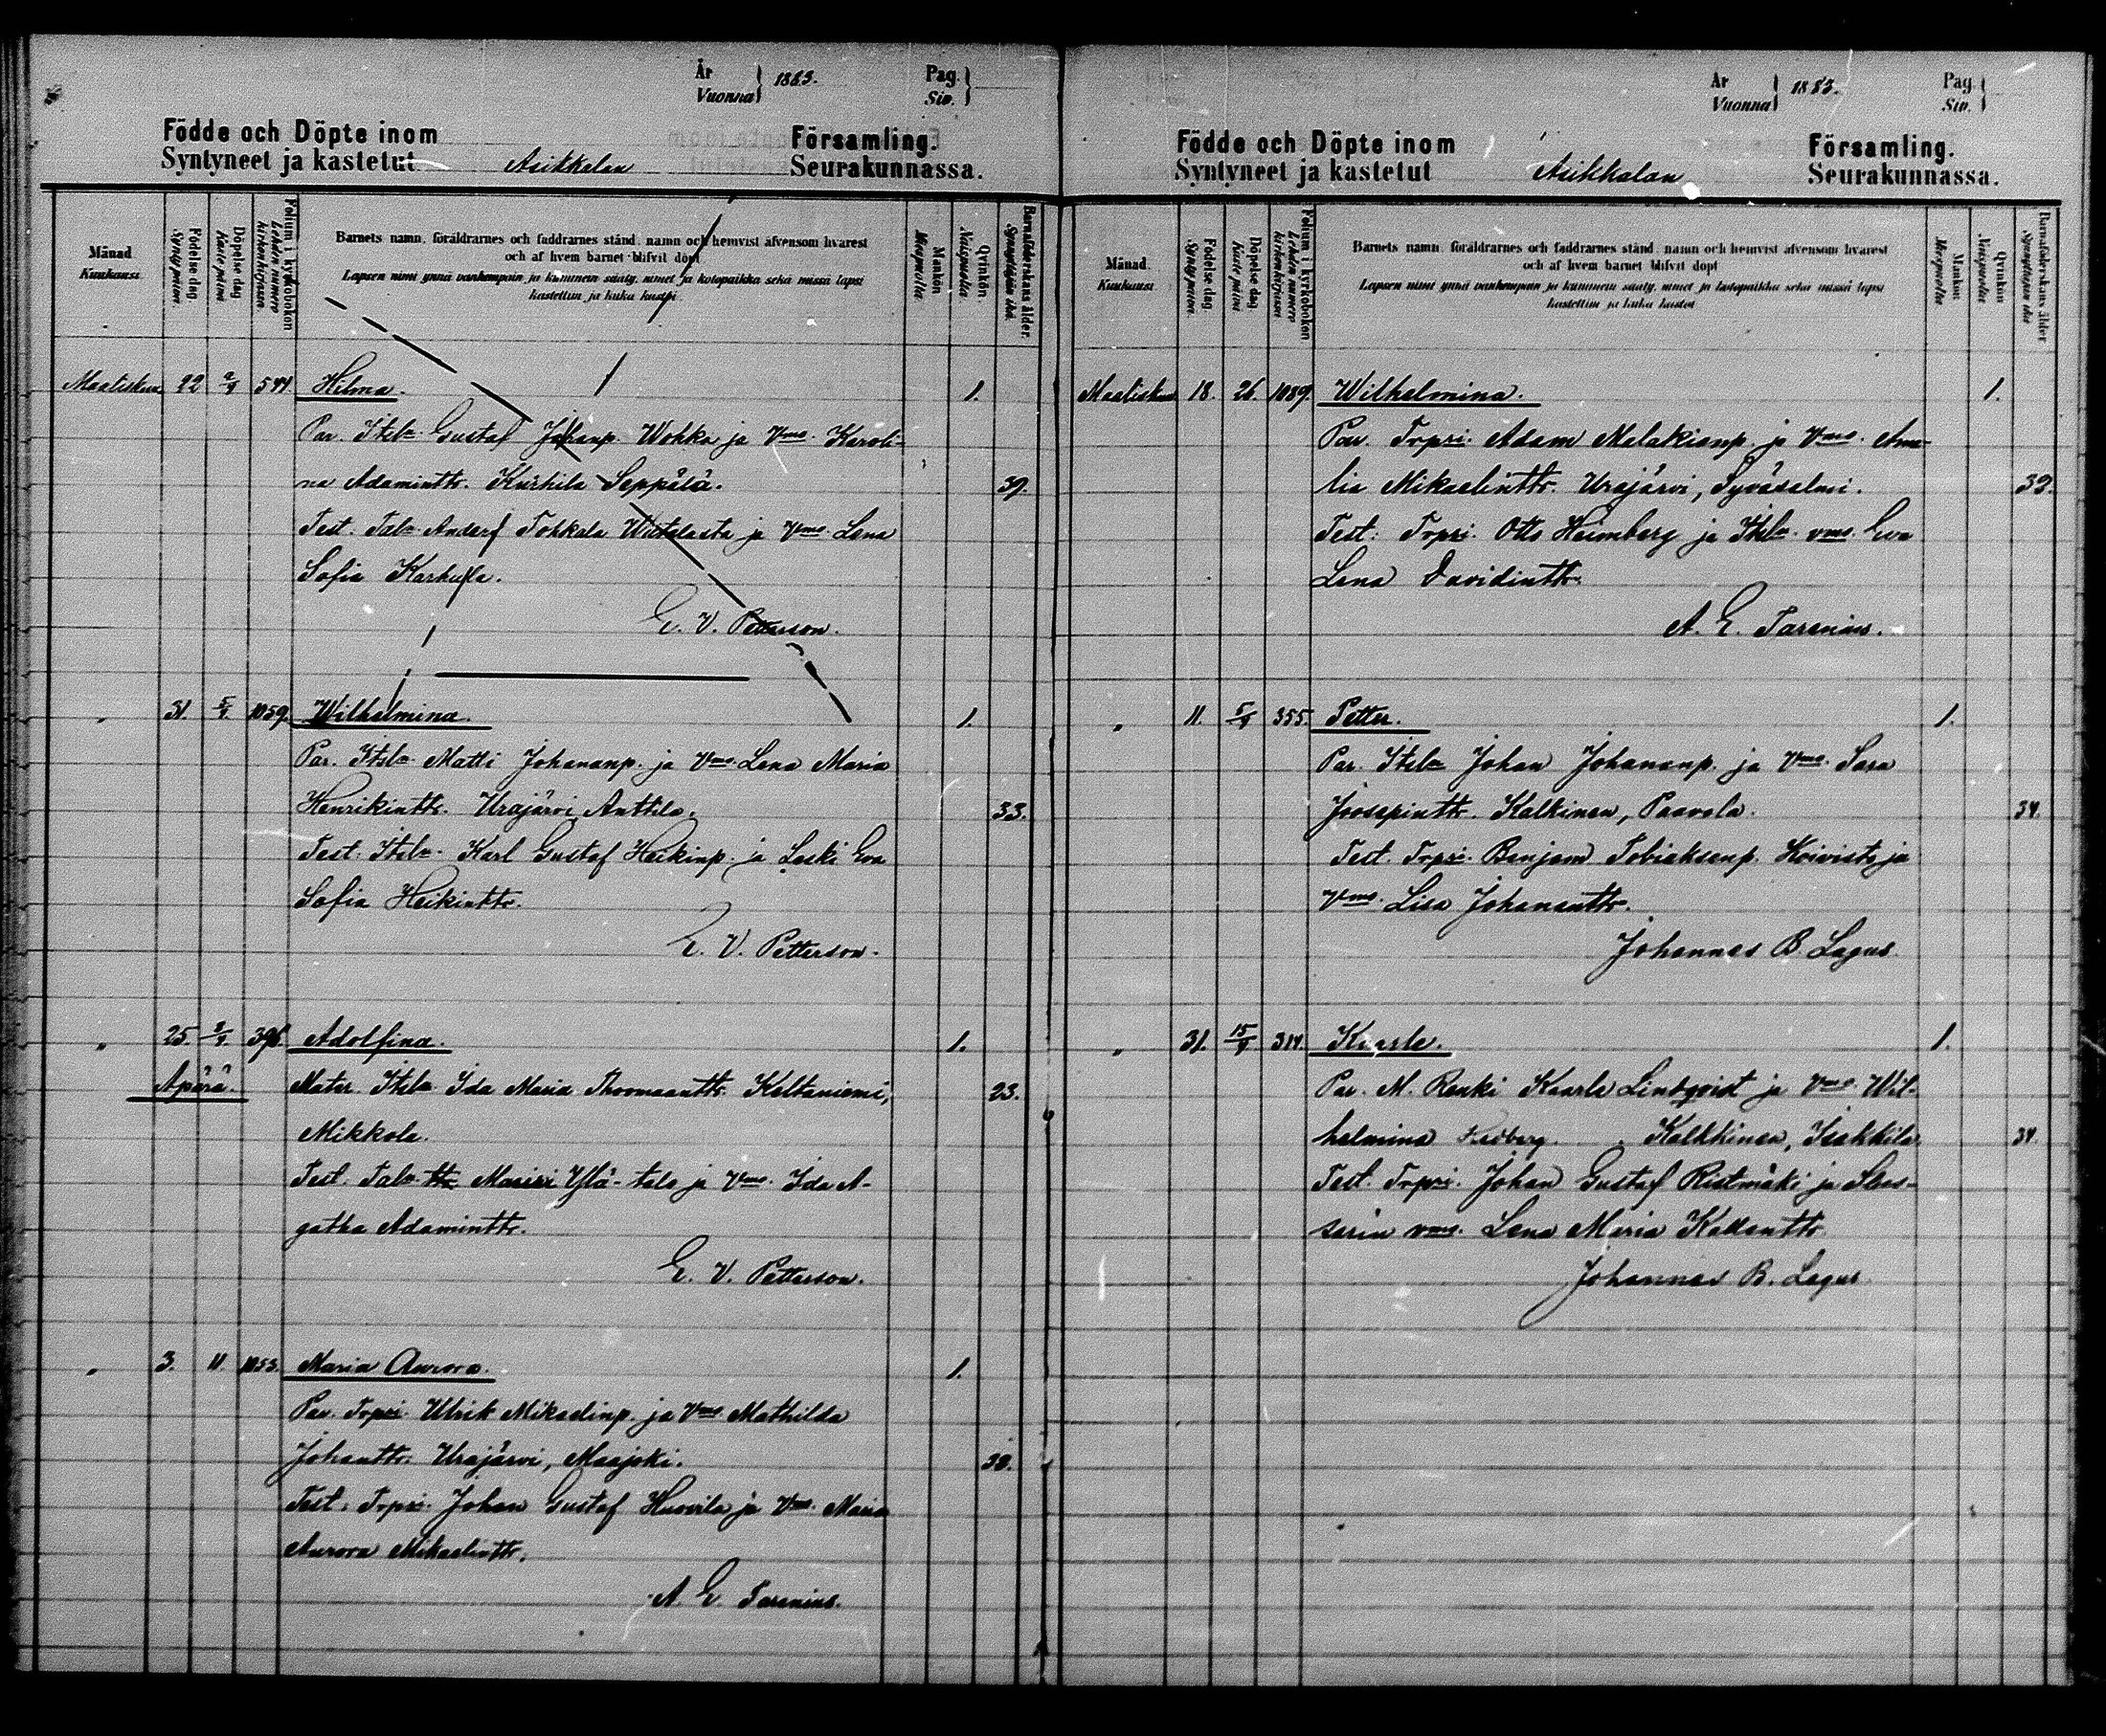 År
Vuonna } 1883.
Pag.
Siv. }
Födde och Döpte inom
Syntyneet ja kastetut Asikkalan
Församling.
Seurakunnassa.
Månad
Kuukausi
Födelse dag
Synty päivä
Döpelse dag
Kaste päivä
Folium i kyrkobokon
Lehden numero kirkonkirjassa
Barnets namn, föräldrarnes och faddrarnes stånd, namn och hemvist äfvensom hvarest
och af hvem barnet blifvit döpt
Lapsen nimi ynnä vanhempain ja kummein sääty, nimet ja kotopaikka sekä missä lapsi
kastettun ja kuka kastoi
Mankön
Miespuolta
Qvinkön
Naispuolta
Barnaföderskans ålder.
Synnyttäjän ikä.
Maaliskuu 22 2/4 544 Hilma. 1.
Par. Itsln. Gustaf Johanp. Wohka ja Vmo. Karoli-
na Adamintr. Kurhila Seppälä. 39.
Test. Taln. Anders Tohkala Watalasta ja Vmo. Lena
Sofia Karhula.
E. V. Petterson.
" 31. 5/4. 1059. Wilhelmina. 1.
Par. Itsln. Matti Johananp. ja Vmo. Lena Maria
Henrikintr. Urajärvi Anttila. 33.
Test. Itsln. Karl Gustaf Heikinp. ja Leski Eva
Sofia Heikintr.
E. V. Petterson.
" 25. 2/4. 396. Adolfina. 1.
Äpärä. Mater. Itsln. Ida Maria Thoomaantr. Keltaniemi, 23.
Mikkola.
Test. Taln. tr. Ylä-talo ja Vmo. Ida A-
gatha Adamintr.
E. V. Petterson.
" 3. 11. 1053. Maria Aurora. 1.
Par. Trpri Ulrik Mikaelinp. ja Vmo Mathilda
Johantr. Urajärvi, Maajoki. 32.
Test. Trpri. Johan Gustaf Huovila ja Vmo. Maria
Aurora Mikaelintr.
A. E. Tarenius.
År
Vuonna } 1883.
Pag
Siv. }
Födde och Döpte inom
Syntyneet ja kastetut Asikkalan
Församling.
Seurakunnassa.
Månad.
Kuukausi
Födelse dag
Synty päivä
Döpelse dag
Kaste päivä
Folium i kyrkobokon
Lehden numero kirkonkirjassa
Barnets namn, föräldrarnes och faddrarnes stånd, namn och hemvist äfvensom hvarest
och af hvem barnet blifvit döpt
Lapsen nimi ynnä vanhempain ja kummein sääty, nimet ja kotopaikka sekä missä lapsi
kastettun ja kuka kastoi
Mankön
Miespuolta
Qvinkön
Naispuolta
Barnaföderskans ålder
Synnyttäjän ikä
Maaliskuu 18. 26. 1089. Wilhelmina. 1.
Par. Trpri. Adam Malakianp. ja Vmo. Ama-
lia Mikaelintr. Urajärvi, Syväsalmi. 32.
Test: Trpri. Otto Heimberg ja Itsln. vmo. Eva
Lena Davidintr.
A. E. Tarenius.
" 11. 5/4 355. Petter. 1.
Par. Itsln Johan Johananp. ja Vmo. Sara
Joosepintr. Kalkinen, Paavola. 34.
Test. Trpri. Benjam Tobiaksenp. Koivisto ja
Vmo. Lisa Johanantr.
Johannes B. Lagus.
" 31. 15/4 314. Kaarle. 1.
Par. M. Renki Kaarle Lindqvist ja Vmo. Wil-
helmina Hedberg. Kalkkinen, Isakkila 34
Test. Trpri. Johan Gustaf Ristmäki ja Slas-
sarin vmo. Lena Maria Kallentr.
Johannes B. Lagus.